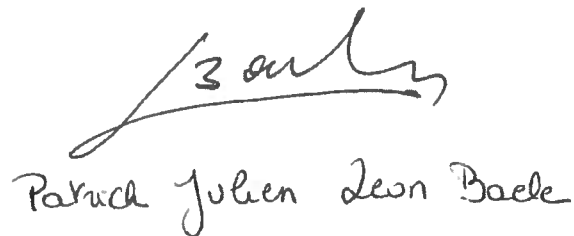 Patrick Julien Leon Baele